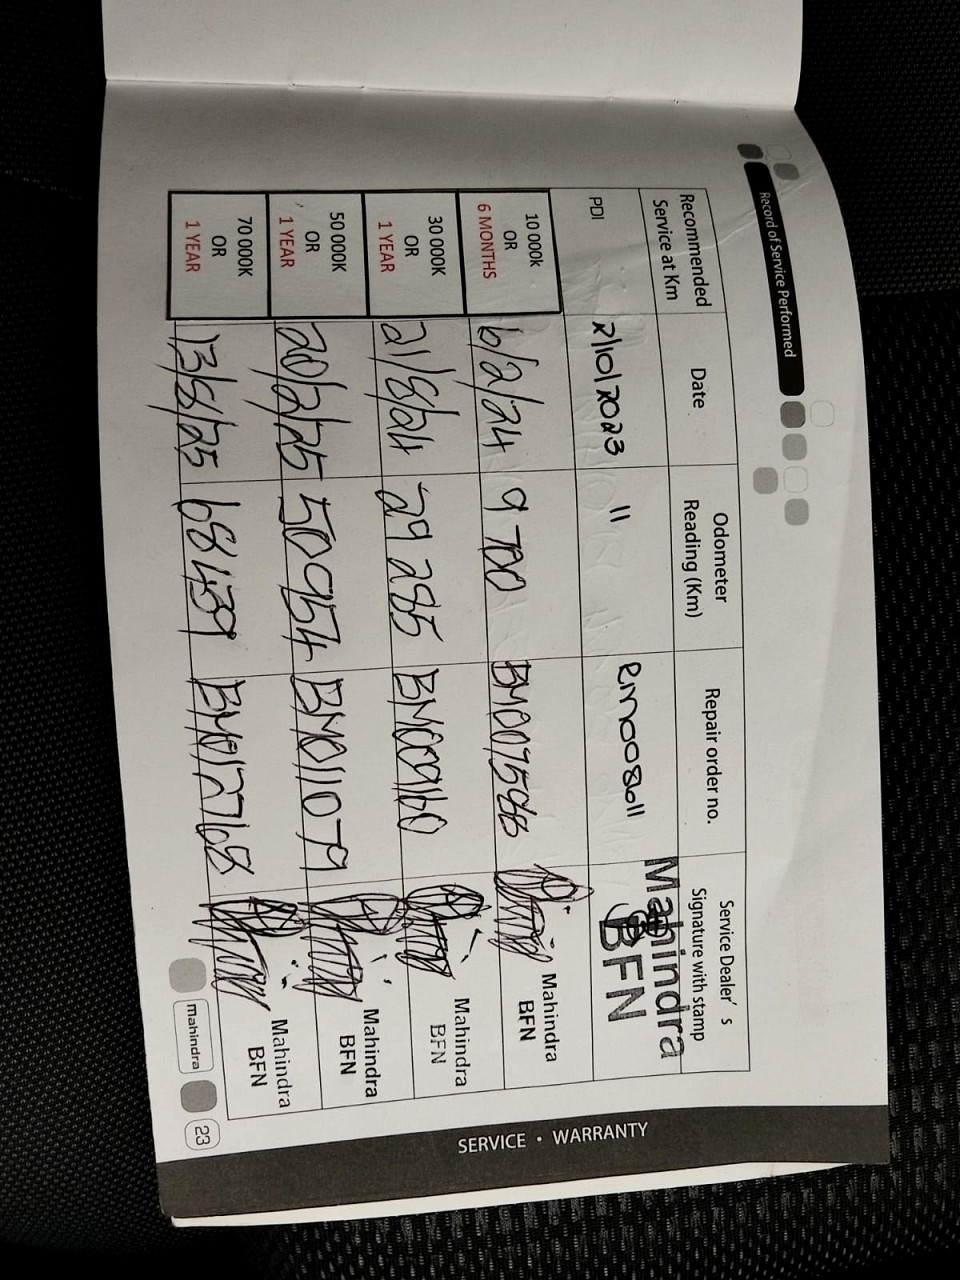 Record of Service Performed
Recommended Service at Km | Date | Odometer Reading (Km) | Repair order no. | Service Dealer's Signature with stamp
PDI | 2/10/2023 | 11 | Mahindra BFN
10 000k OR 6 MONTHS | 6/2/24 | 9 700 | Mahindra BFN
30 000K OR 1 YEAR | 21/8/24 | 29 285 | BM009160 | Mahindra BFN
50 000K OR 1 YEAR | 20/2/25 | 50954 | BM011079 | Mahindra BFN
70 000K OR 1 YEAR | 13/8/25 | 68439 | Mahindra BFN
mahindra
23
SERVICE • WARRANTY